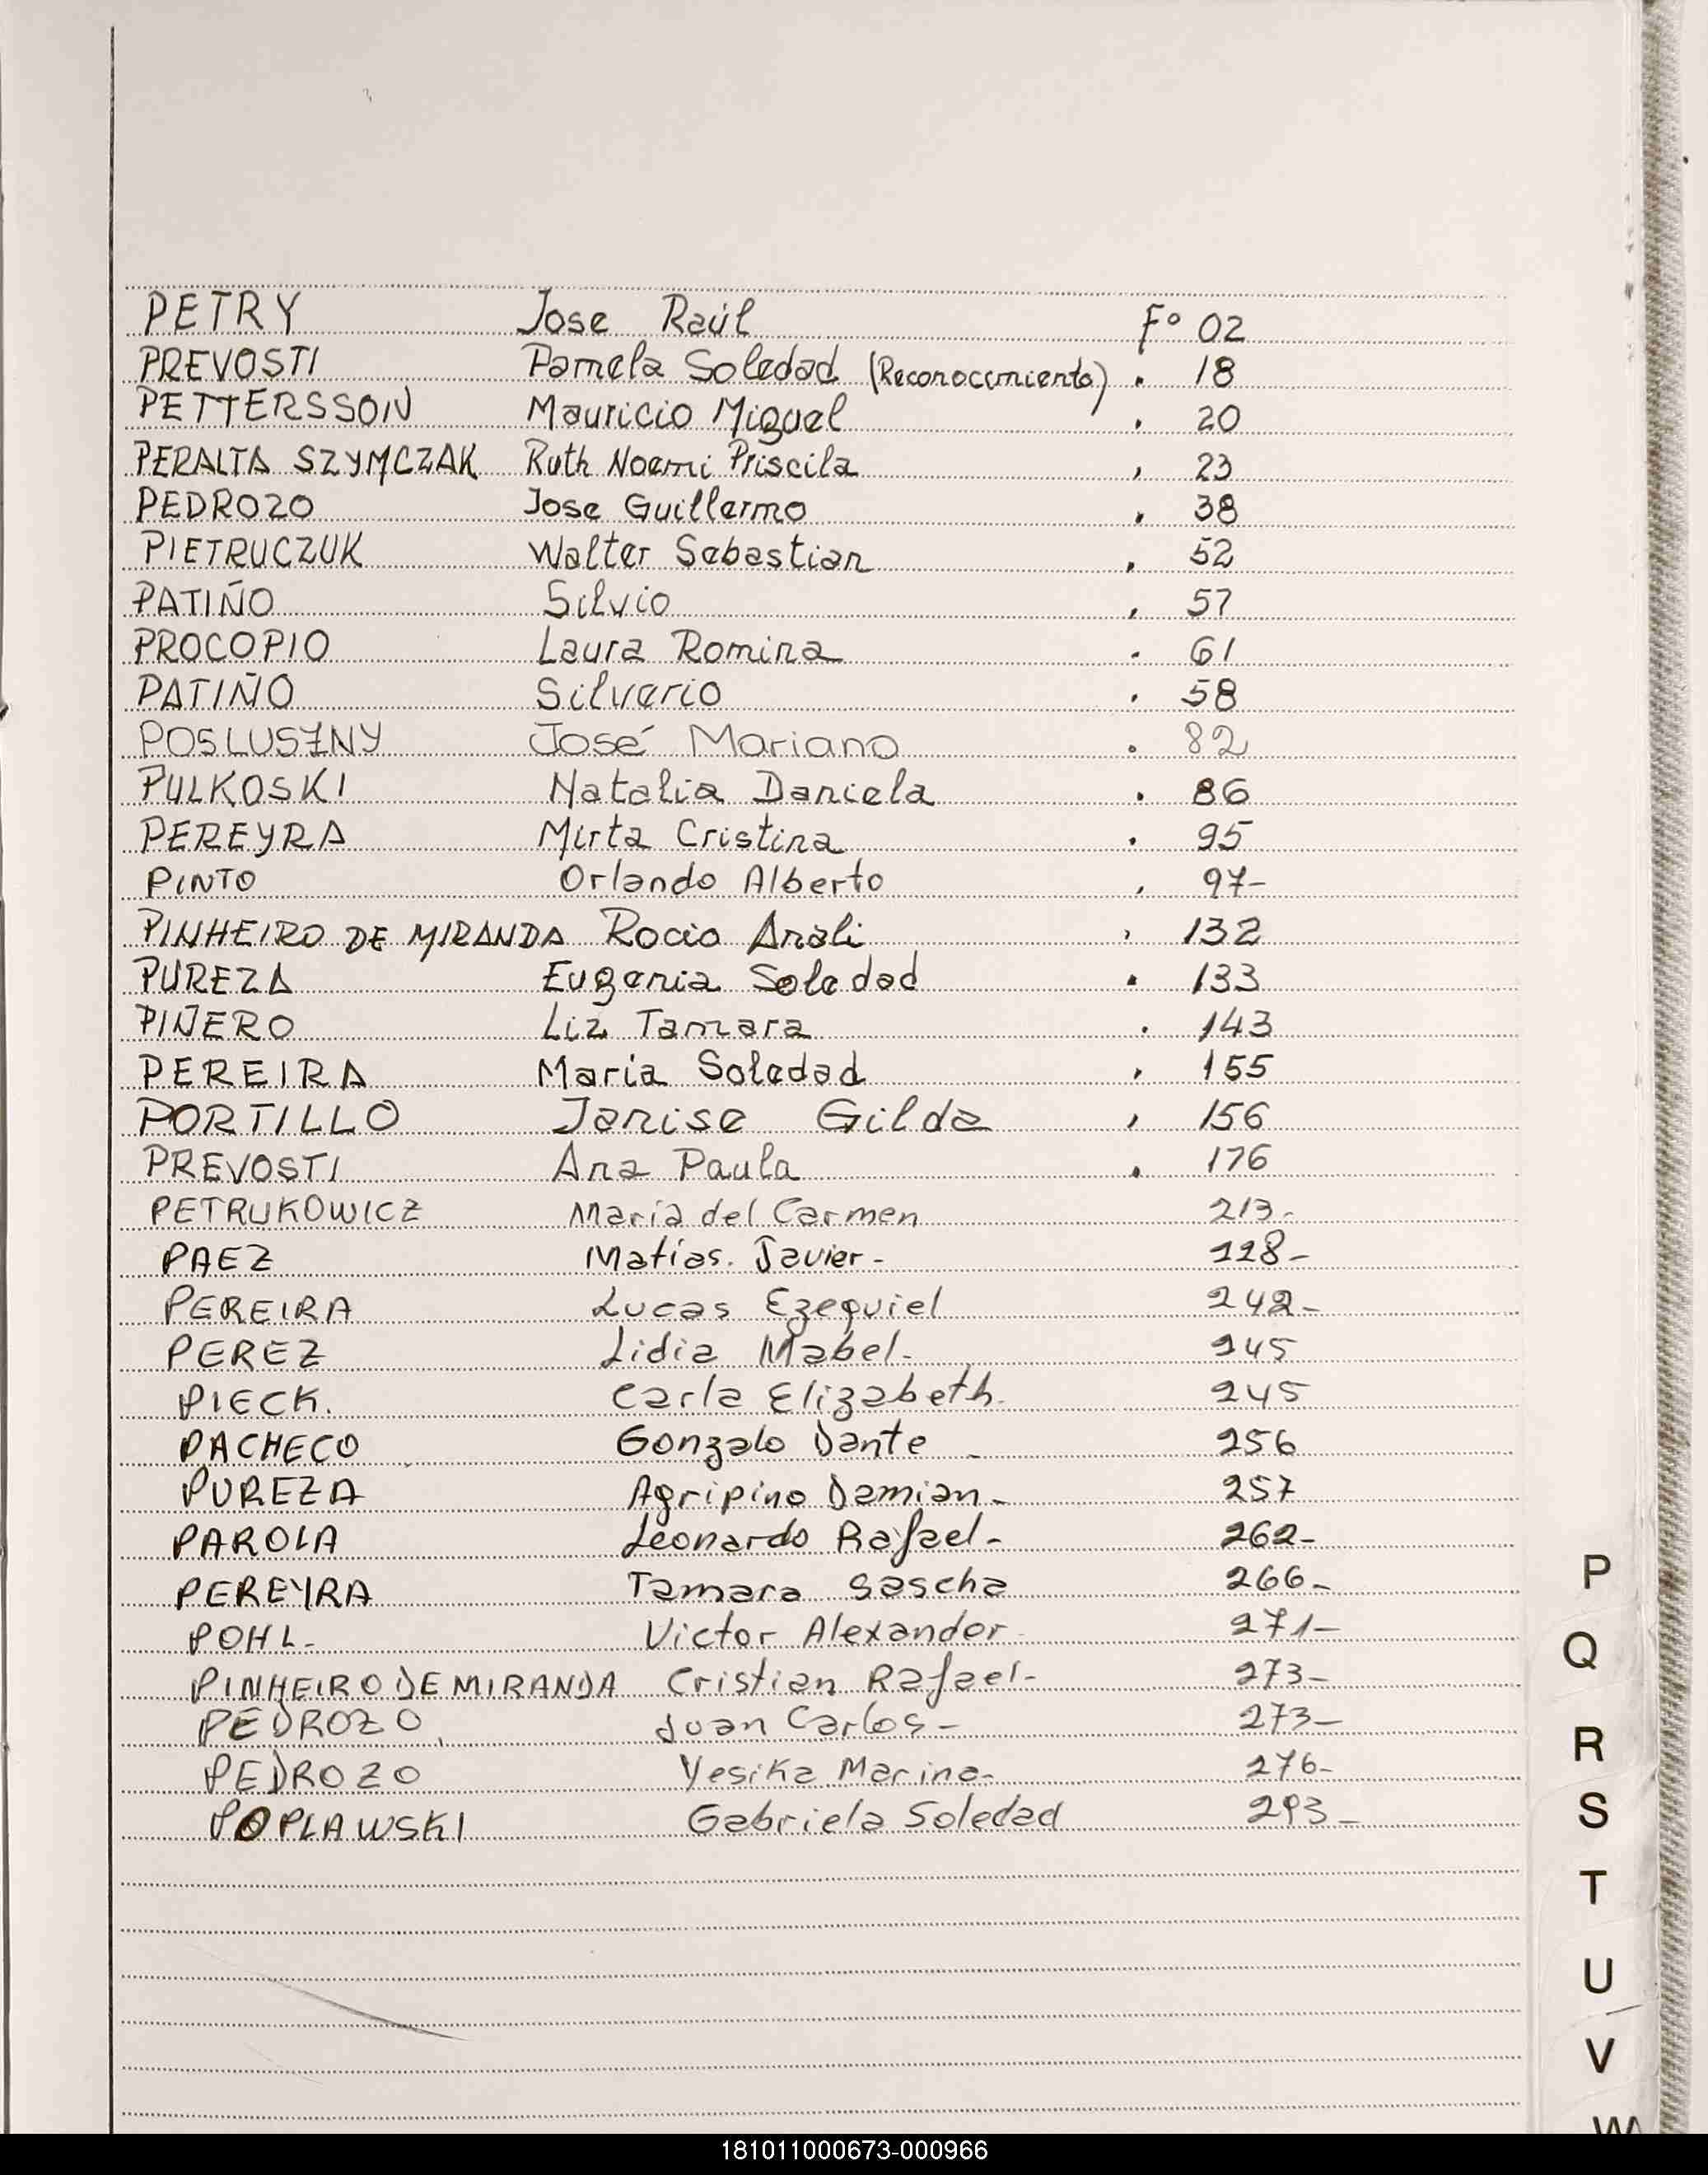 PETRY Jose Raúl Fº 02
PREVOSTI Pamela Soledad (Reconocimiento) . 18
PETTERSSON Mauricio Miguel . 20
PERALTA SZYMCZAK Ruth Noemi Priscila , 23
PEDROZO Jose Guillermo , 38
PIETRUCZUK Walter Sebastian , 52
PATIÑO Silvio , 57
PROCOPIO Laura Romina . 61
PATIÑO Silverio , 58
POSLUSZNY José Mariano . 82
PULKOSKI Natalia Daniela . 86
PEREYRA Mirta Cristina . 95
PINTO Orlando Alberto , 97-
PINHEIRO DE MIRANDA Rocio Anali , 132
PUREZA Eugenia Soledad . 133
PIÑERO Liz Tamara . 143
PEREIRA Maria Soledad , 155
PORTILLO Janise Gilda , 156
PREVOSTI Ana Paula . 176
PETRUKOWICZ María del Carmen 213-
PAEZ Matías. Javier-
PEREIRA Lucas Ezequiel 242-
PEREZ Lidia Mabel-
PIECK. Carla Elizabeth. 245
PACHECO Gonzalo Dante - 256
PUREZA Agripino Damian- 257
PAROLA Leonardo Rafael- 262-
PEREYRA Tamara Sascha 266-
POHL- Victor Alexander 271-
PINHEIRO DE MIRANDA Cristian Rafael- 273-
PEDROZO Juan Carlos- 273-
PEDROZO Yesika Marina- 276-
POPLAWSKI Gabriela Soledad 293-
P
Q
R
S
T
U
V
W
181011000673-000966